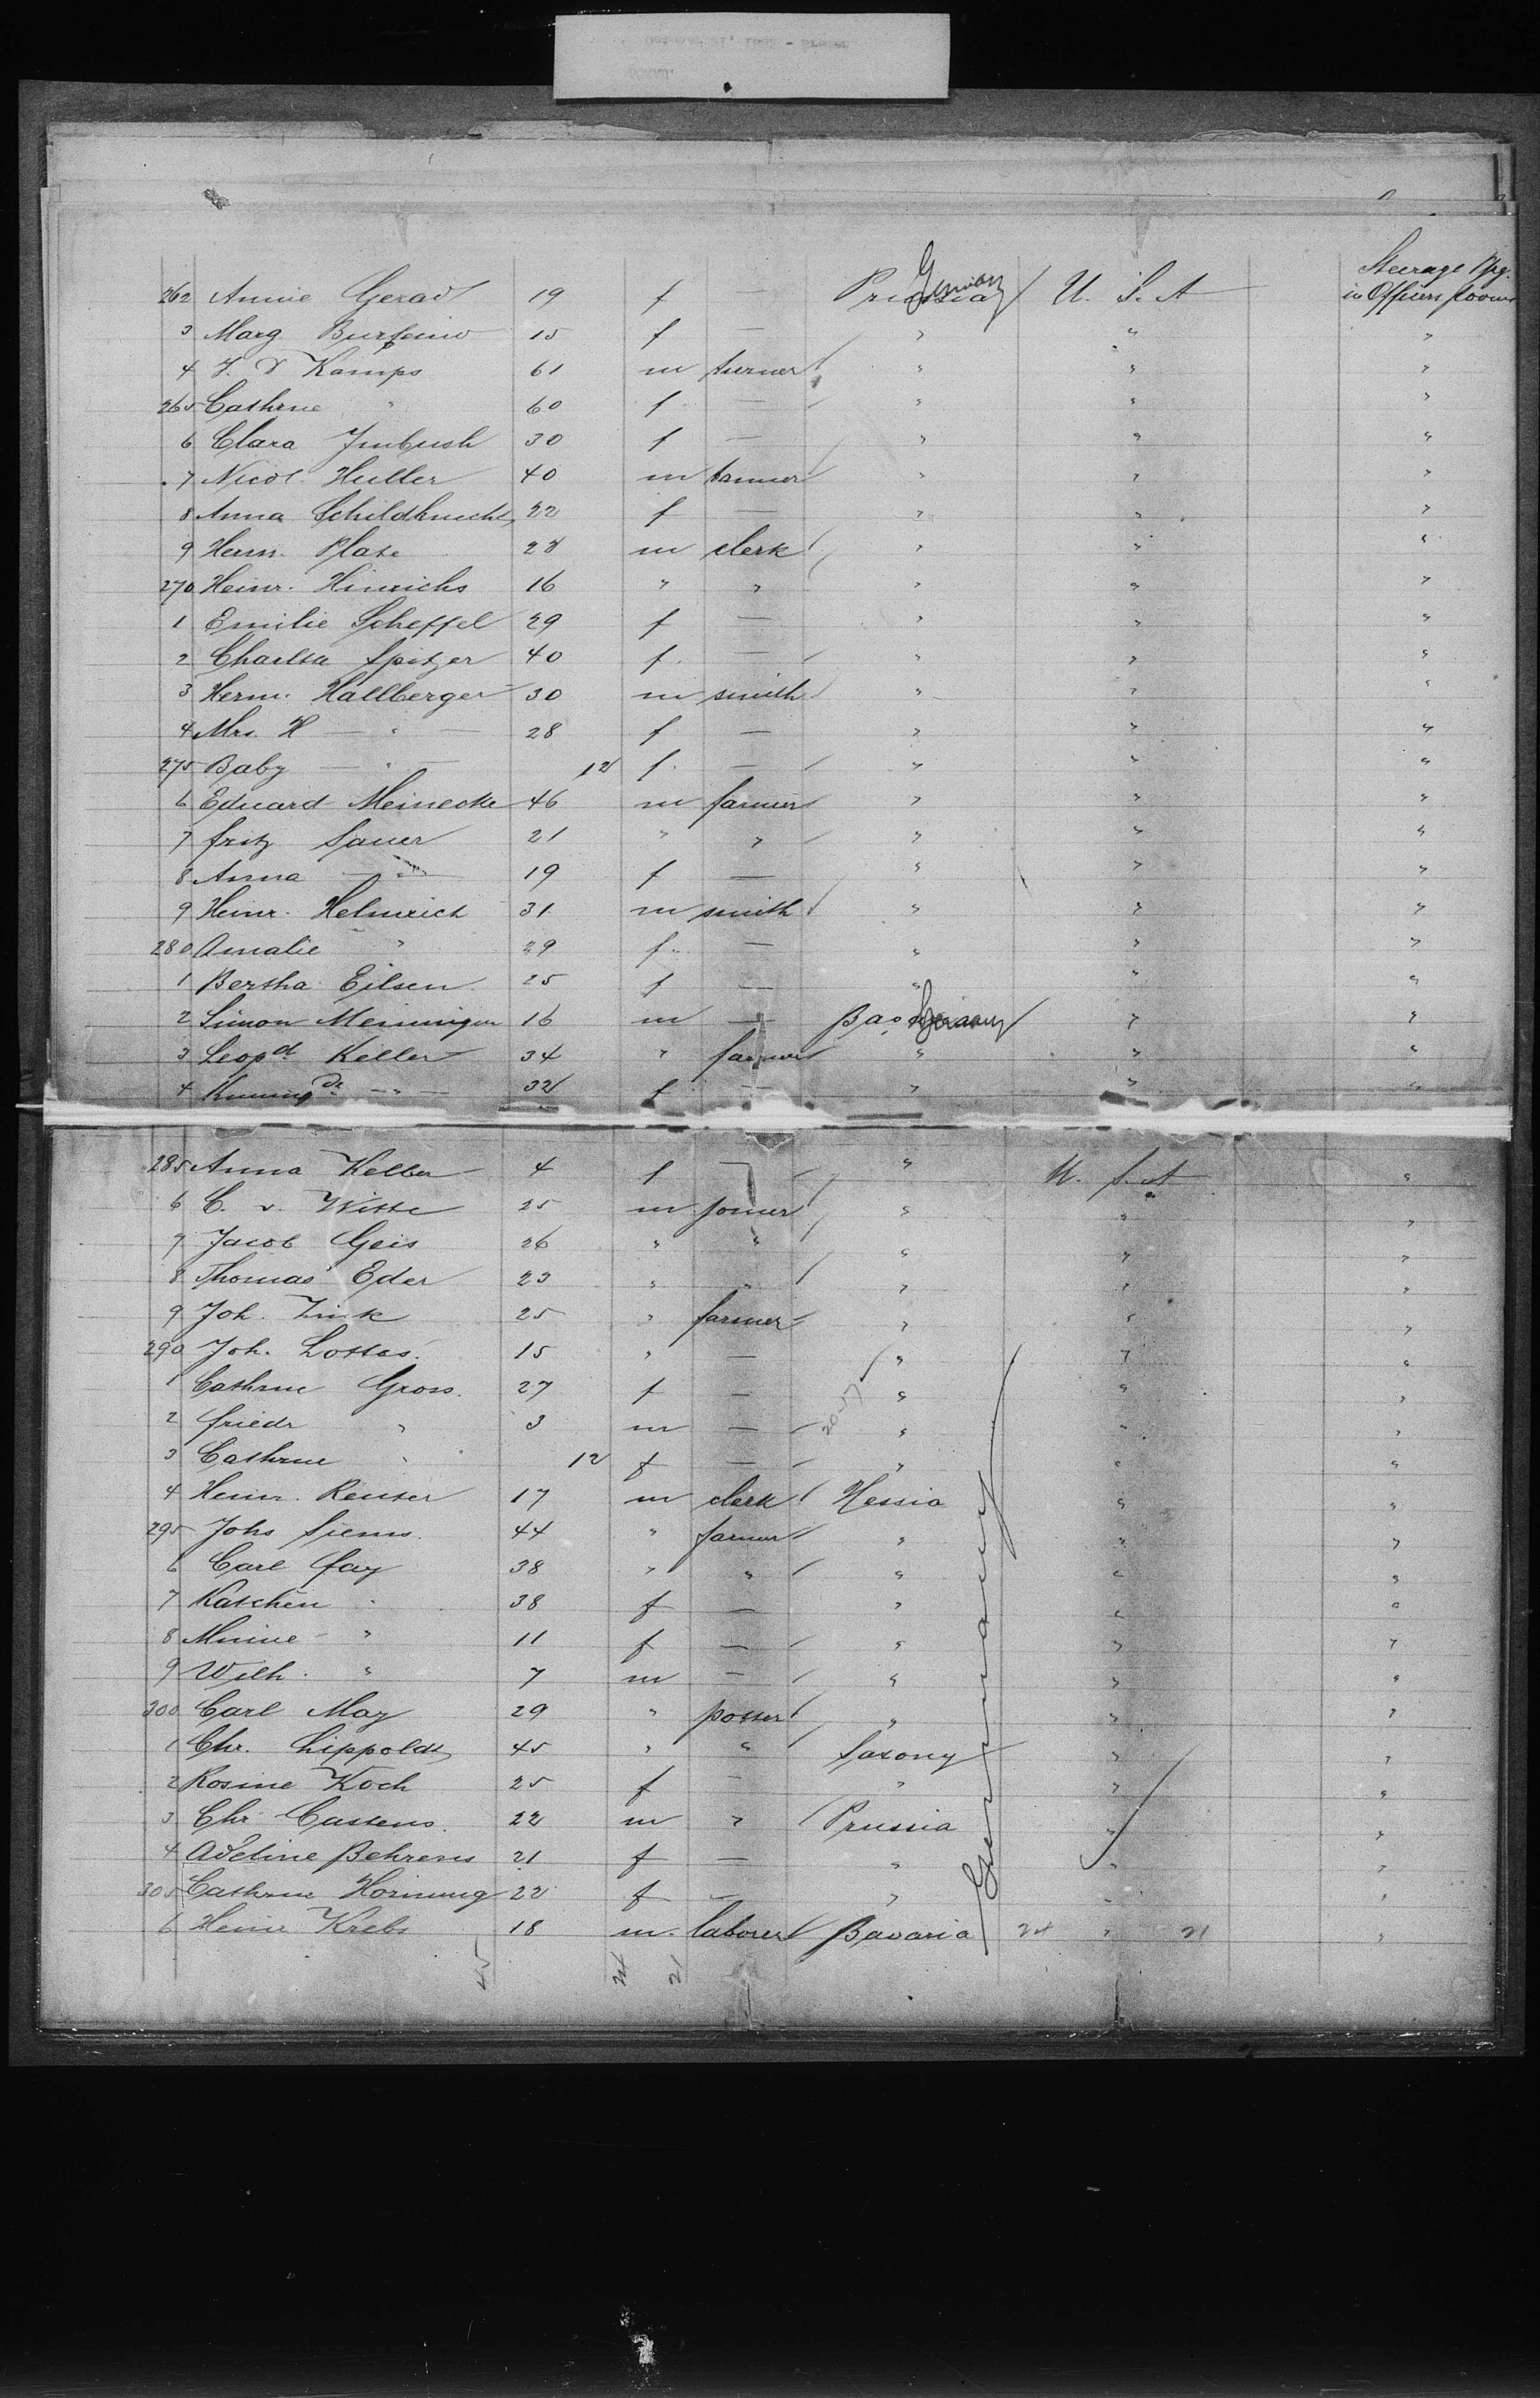 Steerage Psg.
262 Annie Gerad 19 f — Prussia Germany U. S. A in Officers rooms
3 Marg 15 f — " " "
4 J. D Kamps 61 m turner " " "
265 Cathrne " 60 f — " " "
6 Clara Imbush 30 f — " " "
7 Nicol. Huller 40 m tanner " " "
8 Anna Schildknecht 22 f — " " "
9 Herm. Plate 28 m clerk " " "
270 Heinr. Hinrichs 16 " " " " "
1 Emilie Scheffel 29 f — " " "
2 Spitzer 40 f. — " " "
3 Herm. Hallberger 30 m smith " " "
4 Mrs. H — " 28 f — " " "
275 Baby — " — 12 f. — " " "
6 Eduard Meinecke 46 m farmer " " "
7 Fritz Sauer 21 " " " " "
8 Anna — " — 19 f — " " "
9 Heinr. Helmrich 31 m smith " " "
280 Amalie " 29 f. — " " "
1 Bertha Eilsen 25 f — " " "
2 Simon Meininger 16 m — Germany " "
3 Leopd Keller 34 " farmer " " "
4 — " — 32 f — " " "
285 Anna Keller 4 f — " U. S. A "
6 C. v. Witte 25 m joiner " " "
7 Jacob Geis 26 " " " " "
8 Thomas Eder 23 " " " " "
9 Joh. Zink 25 " farmer " " "
290 Joh. Lottes. 15 " — " " "
1 Cathrne Gross. 27 f — " " "
2 Friedr " 3 m — " " "
3 Cathrne " 12 f — " " "
4 Heinr. Reuter 17 m clerk Hessia " "
295 Johs Siems. 44 " farmer " " "
6 Carl Fay 38 " " " " "
7 Katchen " 38 f — " " "
8 Minne " 11 f — " " "
9 Wilh. " 7 m — " " "
300 Carl May 29 " potter " " "
1 Chr. Lippoldt 45 " " Saxony " "
2 Rosine Koch 25 f — " " "
3 Chr Castens. 22 m " Prussia " "
4 Adeline Behrens 21 f — " " "
305 Cathrne Hornung 22 f — " " "
6 Heinr Krebs 18 m. laborer Bavaria 24 " 21 "
Germany
45 24 21